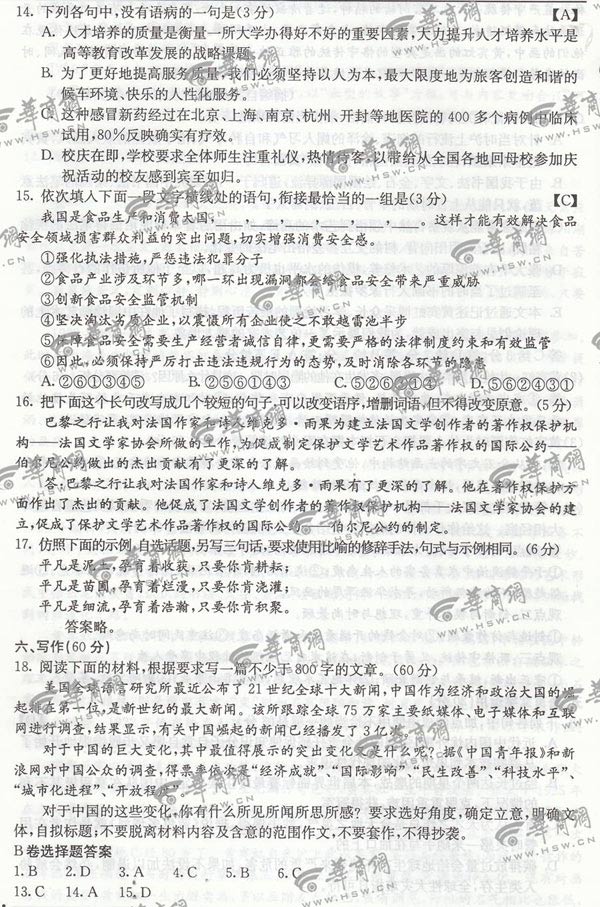 14. 下列各句中,没有语病的一句是(3分) 【A】
A. 人才培养的质量是衡量一所大学办得好不好的重要因素,大力提升人才培养水平是
高等教育改革发展的战略课题。
B. 为了更好地提高服务质量,我们必须坚持以人为本,最大限度地为旅客创造和谐的
候车环境、快乐的人性化服务。
C. 这种感冒新药经过在北京、上海、南京、杭州、开封等地医院的400多个病例中临床
试用,80%反映确实有疗效。
D. 校庆在即,学校要求全体师生注重礼仪,热情待客,以带给从全国各地回母校参加庆
祝活动的校友感到宾至如归。
15. 依次填入下面一段文字横线处的语句,衔接最恰当的一组是(3分) 【C】
我国是食品生产和消费大国,____,____,____,____,____,____。这样才能有效解决食品
安全领域损害群众利益的突出问题,切实增强消费安全感。
①强化执法措施,严惩违法犯罪分子
②食品产业涉及环节多,哪一环出现漏洞都会给食品安全带来严重威胁
③创新食品安全监管机制
④坚决淘汰劣质企业,以震慑所有企业使之不敢越雷池半步
⑤保障食品安全需要生产经营者诚信自律,更需要严格的法律制度约束和有效监管
⑥因此,必须保持严厉打击违法违规行为的态势,及时消除各环节的隐患
A. ②⑥①③④⑤ B. ②⑤⑥①④③ C. ⑤②⑥③①④ D. ⑤⑥②④③①
16. 把下面这个长句改写成几个较短的句子,可以改变语序,增删词语,但不得改变原意。(5分)
巴黎之行让我对法国作家和诗人维克多·雨果为建立法国文学创作者的著作权保护机
构——法国文学家协会所做的工作,为促成制定保护文学艺术作品著作权的国际公约——
伯尔尼公约做出的杰出贡献有了更深的了解。
答:巴黎之行让我对法国作家和诗人维克多·雨果有了更深的了解。他在著作权保护方
面作出了杰出的贡献。他促成了法国文学创作者的著作权保护机构——法国文学家协会的建
立,促成了保护文学艺术作品著作权的国际公约——伯尔尼公约的制定。
17. 仿照下面的示例,自选话题,另写三句话,要求使用比喻的修辞手法,句式与示例相同。(6分)
平凡是泥土,孕育着收获,只要你肯耕耘;
平凡是苗圃,孕育着烂漫,只要你肯浇灌;
平凡是细流,孕育着浩瀚,只要你肯积聚。
答案略。
六、写作(60分)
18. 阅读下面的材料,根据要求写一篇不少于800字的文章。(60分)
美国全球语言研究所最近公布了21世纪全球十大新闻,中国作为经济和政治大国的崛
起排在第一位,是新世纪的最大新闻。该所跟踪全球75万家主要纸媒体、电子媒体和互联
网进行调查,结果显示,有关中国崛起的新闻已经播发了3亿次。
对于中国的巨大变化,其中最值得展示的突出变化会是什么呢?据《中国青年报》和新
浪网对中国公众的调查,得票率依次是“经济成就”、“国际影响”、“民生改善”、“科技水平”、
“城市化进程”、“开放程度”。
对于中国的这些变化,你有什么所见所闻所思所感?要求选好角度,确定立意,明确文
体,自拟标题;不要脱离材料内容及含意的范围作文,不要套作,不得抄袭。
B卷选择题答案
1. B 2. D 3. A 4. C 5. B 6. C
13. C 14. A 15. D
华商网
WWW.HSW.CN